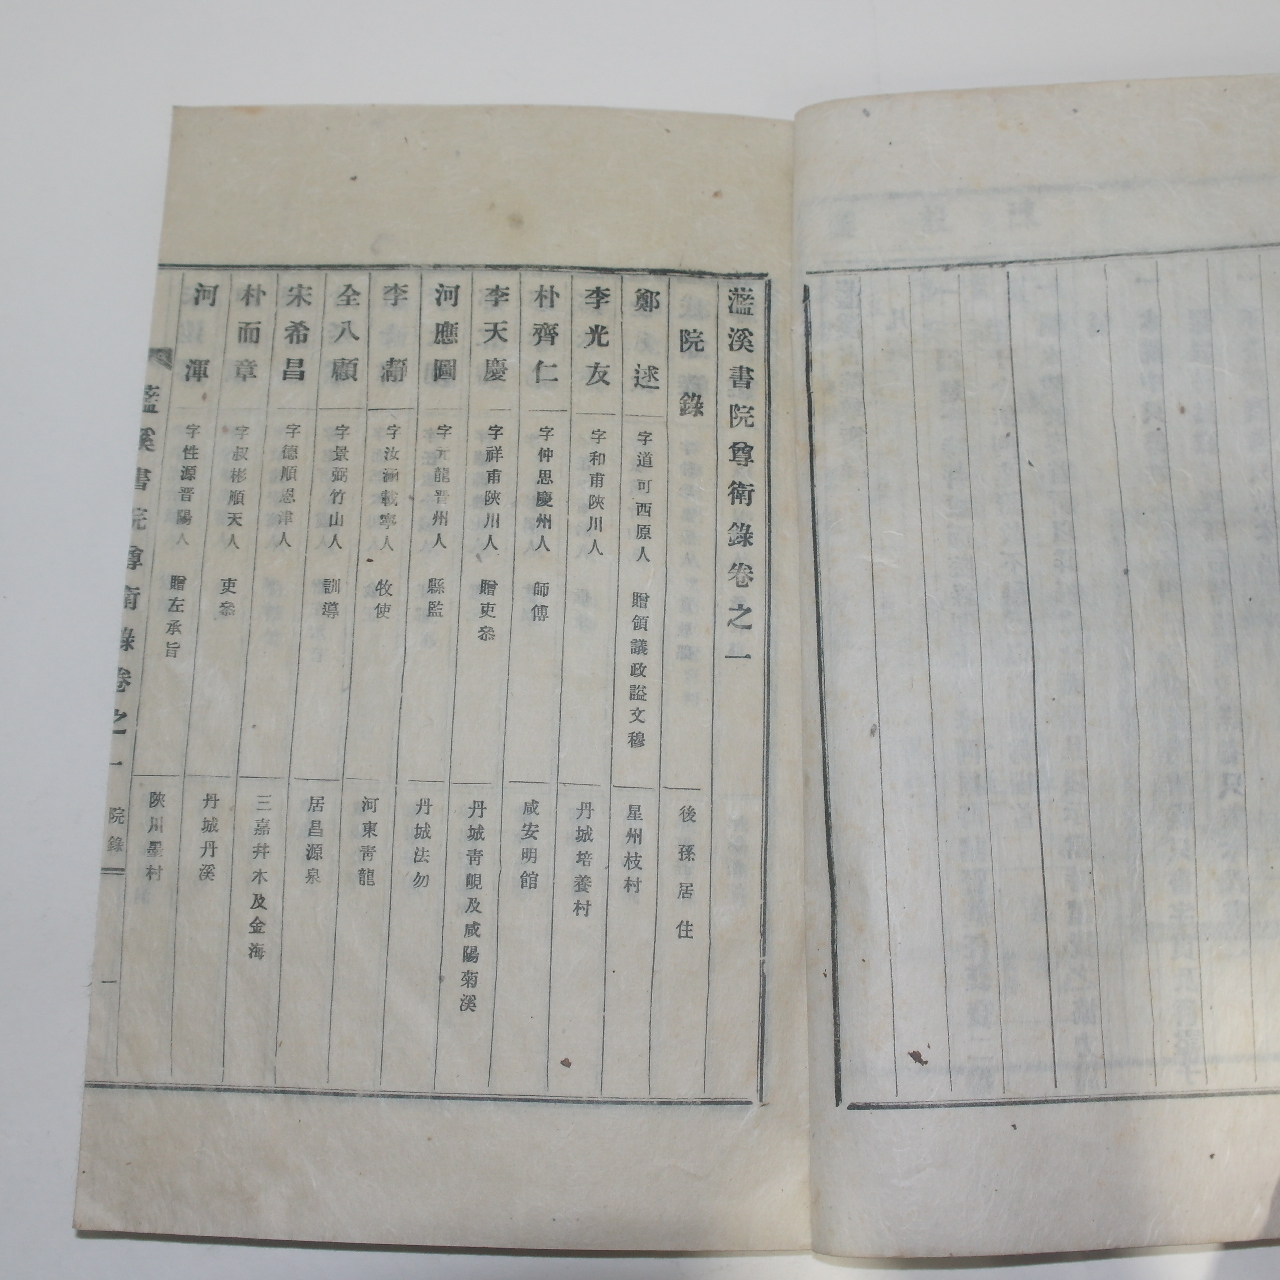 灆溪書院尊衛錄卷之一
院錄 後孫居住
鄭逑 字道可西原人 贈領議政謚文穆 星州枝村
李光友 字和甫陜川人 丹城培養村
朴齊仁 字仲思慶州人 師傅 咸安明館
李天慶 字祥甫陜川人 贈吏叅 丹城靑峴及咸陽菊溪
河應圖 字元龍晋州人 縣監 丹城法勿
李瀞 字汝涵載寧人 牧使 河東靑龍
全八顧 字景弼竹山人 訓導 居昌源泉
宋希昌 字德順恩津人 三嘉幷木及金海
朴而章 字叔彬順天人 吏叅 丹城丹溪
河渾 字性源晋陽人 贈左承旨 陜川墨村
灆溪書院尊衛錄卷之一 院錄 一